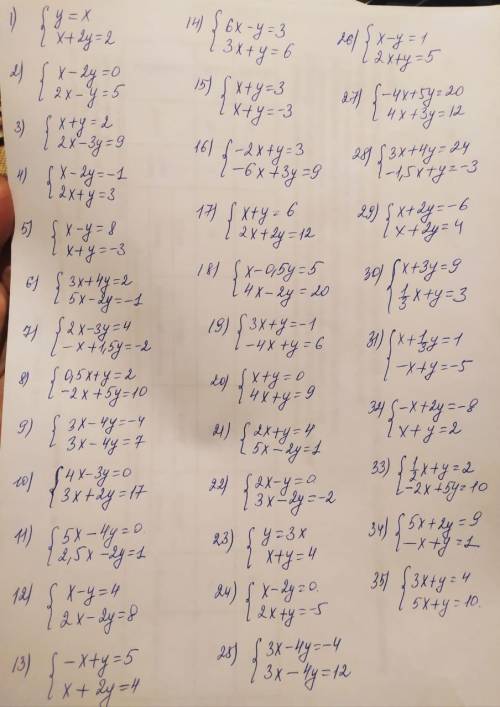 1) y=x
x+2y=2
2) x-2y=0
2x-y=5
3) x+y=2
2x-3y=9
4) x-2y=-1
2x+y=3
5) x-y=8
x+y=-3
6) 3x+4y=2
5x-2y=-1
7) 2x-3y=4
-x+1,5y=-2
8) 0,5x+y=2
-2x+5y=10
9) 3x-4y=-4
3x-4y=7
10) 4x-3y=0
3x+2y=17
11) 5x-4y=0
2,5x-2y=1
12) x-y=4
2x-2y=8
13) -x+y=5
x+2y=4
14) 6x-y=3
3x+y=6
15) x+y=3
x+y=-3
16) -2x+y=3
-6x+3y=9
17) x+y=6
2x+2y=12
18) x-0,5y=5
4x-2y=20
19) 3x+y=-1
-4x+y=6
20) x+y=0
4x+y=9
21) 2x+y=4
5x-2y=1
22) 2x-y=0
3x-2y=-2
23) y=3x
x+y=4
24) x-2y=0.
2x+y=-5
25) 3x-4y=-4
3x-4y=12
26) x-y=1
2x+y=5
27) -4x+5y=20
4x+3y=12
28) 3x+4y=24
-1,5x+y=-3
29) x+2y=-6
x+2y=4
30) x+3y=9
1/3x+y=3
31) x+1/3y=1
-x+y=-5
32) -x+2y=-8
x+y=2
33) 1/2x+y=2
-2x+5y=10
34) 5x+2y=9
-x+y=1
35) 3x+y=4
5x+y=10.